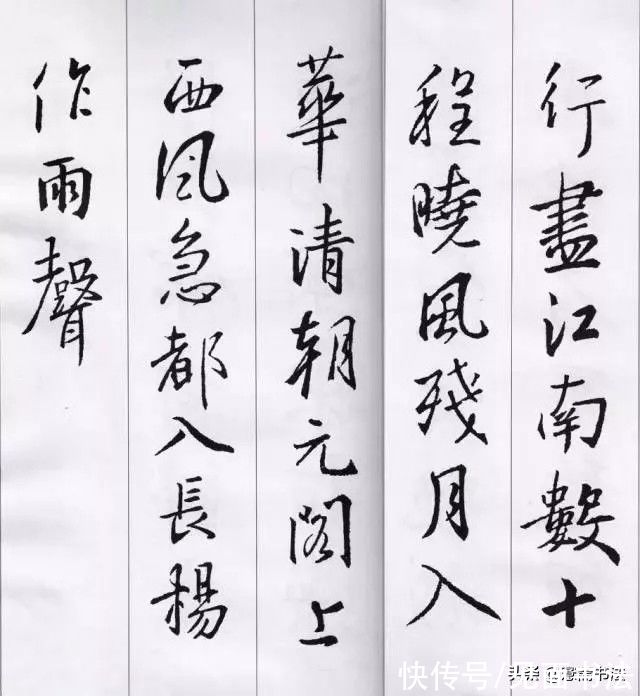 行盡江南數十
程曉風殘月入
華清朝元閣上
西風急都入長楊
作雨聲
快传号/